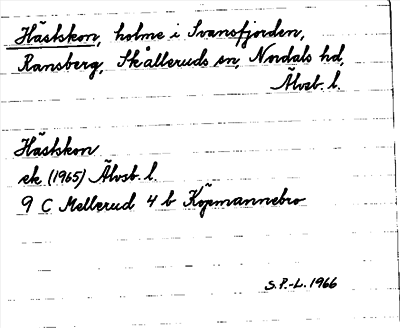 Hästskon, holme i Svansfjorden,
Ransberg, Skålleruds sn, Nordals hd,
Älvsb. l.
Hästskon
ek (1965) Älvsb l.
9 C Mellerud 4 b Köpmannebro
S.P.-L. 1966